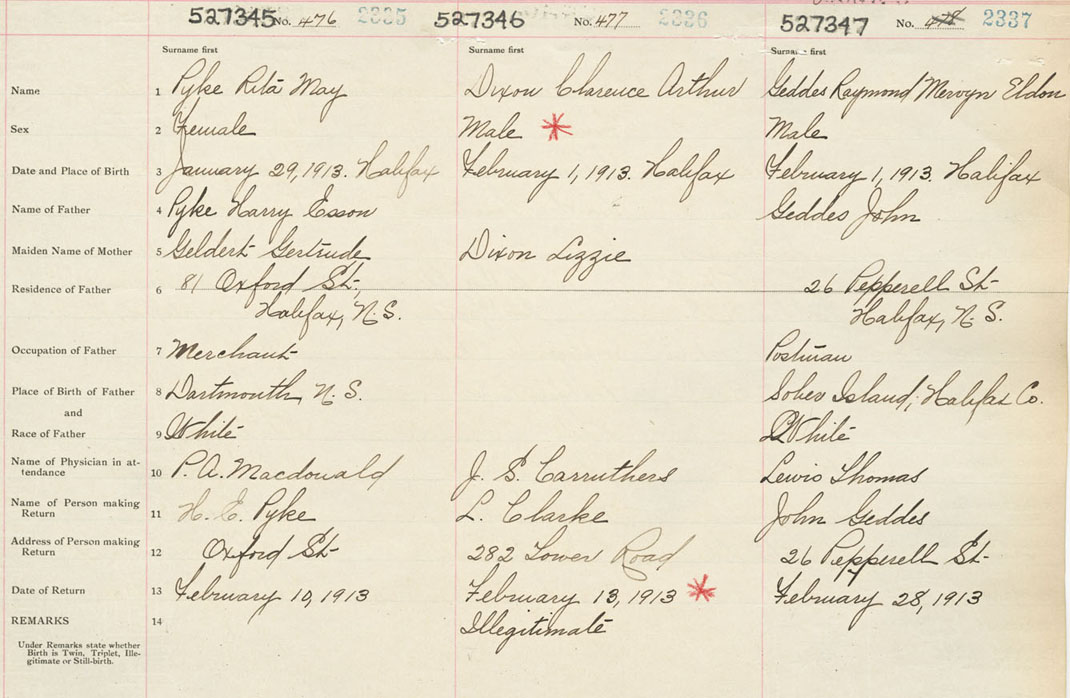 527345 No. 476 2335 527346 No. 477 2336 527347 No. 478 2337
Surname first Surname first Surname first
Name 1 Pyke Rita May Dixon Clarence Arthur Geddes Raymond Mervyn Eldon
Sex 2 Female Male Male
Date and Place of Birth 3 January 29, 1913. Halifax February 1, 1913. Halifax February 1, 1913. Halifax
Name of Father 4 Pyke Harry Esson Geddes John
Maiden Name of Mother 5 Geldert Gertrude Dixon Lizzie
Residence of Father 6 81 Oxford St., 26 Pepperell St
Halifax, N.S. Halifax, N.S.
Occupation of Father 7 Merchant Postman
Place of Birth of Father 8 Dartmouth, N.S. Sober Island, Halifax Co.
and
Race of Father 9 White White
Name of Physician in at-
tendance 10 P. A. Macdonald J. S. Carruthers Lewis Thomas
Name of Person making
Return 11 H. E. Pyke L. Clarke John Geddes
Address of Person making
Return 12 Oxford St 282 Lower Road 26 Pepperell St
Date of Return 13 February 10, 1913 February 13, 1913 February 28, 1913
REMARKS 14 Illegitimate
Under Remarks state whether
Birth is Twin, Triplet, Ille-
gitimate or Still-birth.